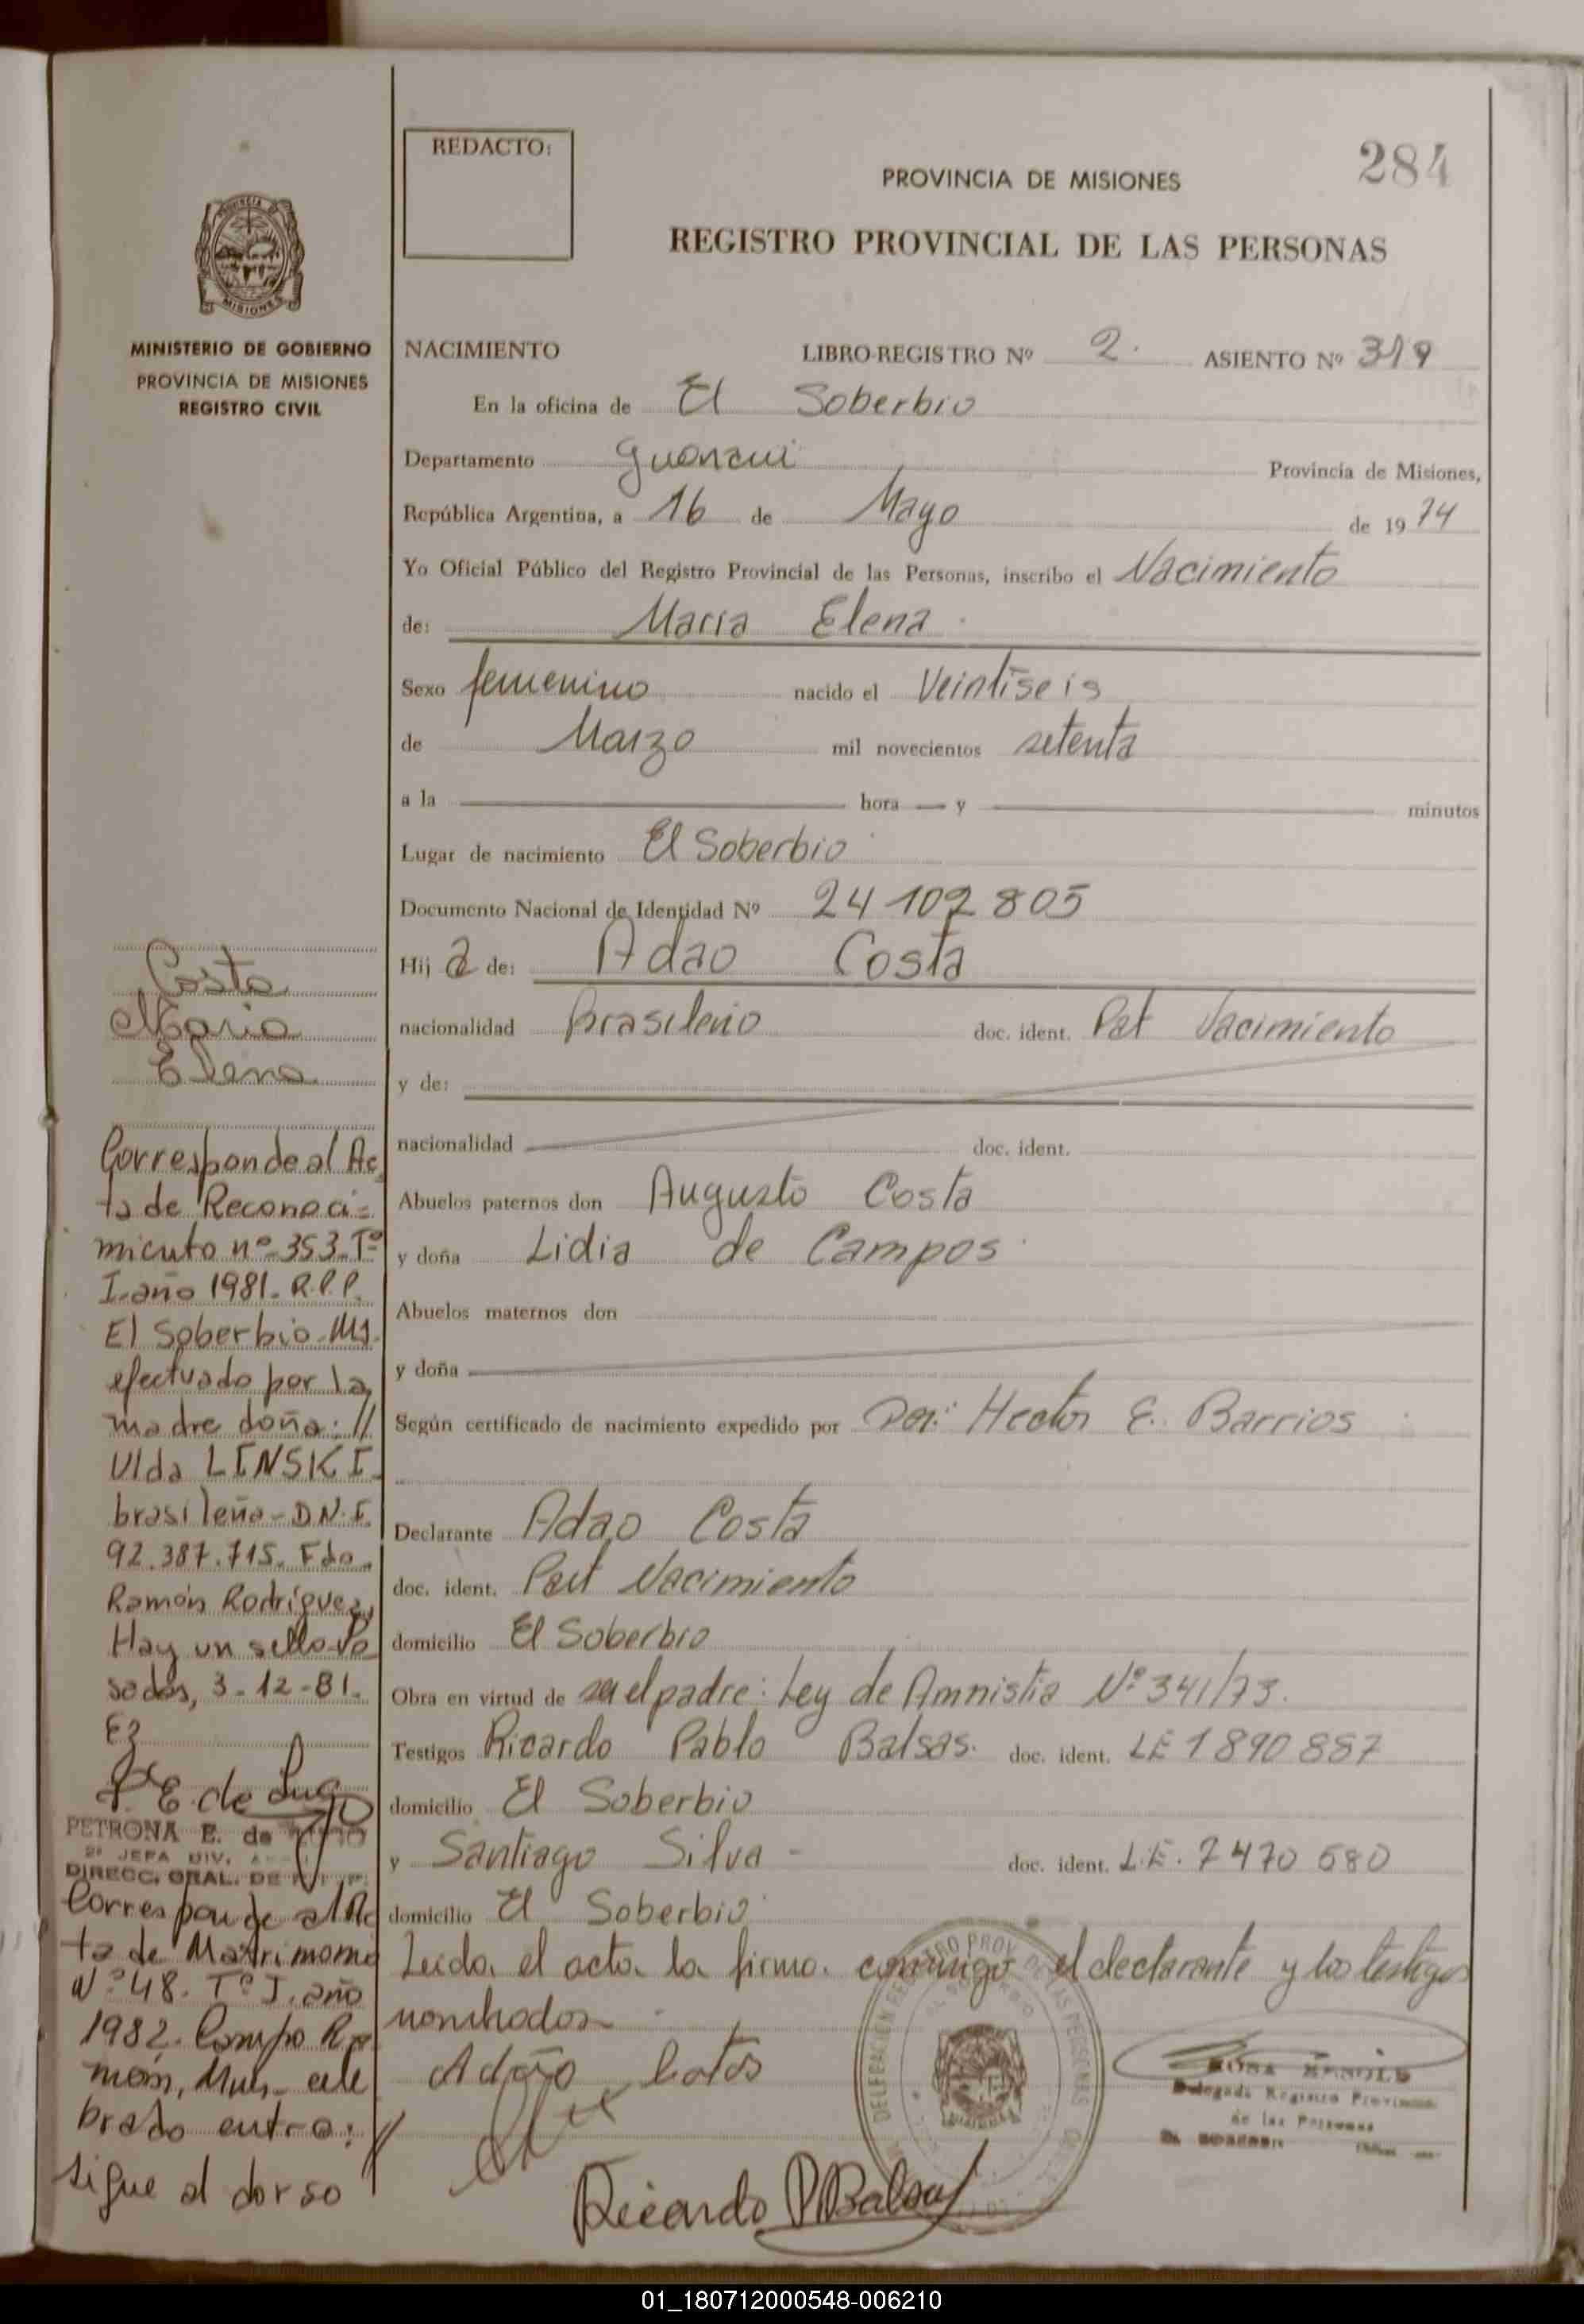 REDACTO:
284
PROVINCIA DE MISIONES
REGISTRO PROVINCIAL DE LAS PERSONAS
PROVINCIA DE
MISIONES
MINISTERIO DE GOBIERNO
PROVINCIA DE MISIONES
REGISTRO CIVIL
NACIMIENTO LIBRO-REGISTRO Nº 2. ASIENTO Nº 319
En la oficina de El Soberbio
Departamento Guarani Provincia de Misiones,
República Argentina, a 16 de Mayo de 1974
Yo Oficial Público del Registro Provincial de las Personas, inscribo el Nacimiento
de: Maria Elena
Sexo femenino nacido el Veintiseis
de Marzo mil novecientos setenta
a la hora y minutos
Lugar de nacimiento El Soberbio
Documento Nacional de Identidad Nº 24 102 805
Hija de: Adao Costa
nacionalidad brasileño doc. ident. Nacimiento
y de:
nacionalidad doc. ident.
Abuelos paternos don Augusto Costa
y doña Lidia de Campos
Abuelos maternos don
y doña
Según certificado de nacimiento expedido por Hector E. Barrios
Declarante Adao Costa
doc. ident. Nacimiento
domicilio El Soberbio
Obra en virtud de ser el padre: Ley de Amnistia Nº 341/73.
Testigos Ricardo Pablo Balsas. doc. ident. LE 1890 887
domicilio El Soberbio
y Santiago Silva - doc. ident. L.E. 7470 680
domicilio El Soberbio
Leida el acta la firma conmigo el declarante y los testigos
nombrados
Ricardo P Balsas
Costa
Maria
Elena
Corresponde al Ac
ta de Reconoci=
miento nº 353-Tº
I-año 1981-R.P.P.
El Soberbio-Ms.
efectuado por la
madre doña: //
Ulda LINSKI
brasileña-D.N.I.
92.387.715. Fdo.
Ramón Rodríguez,
Hay un sello-Po
sadas, 3-12-81.
P. E. de Lugo
PETRONA E. de
2º JEFA DIV.
DIRECC. GRAL. DE
Corresponde al Ac
ta de Matrimonio
Nº 48. Tº I. año
1982. Campo Ra
món, Mnes. cele
brado entre: //
sigue al dorso
Delegada Registro Provincial
de las Personas
01_180712000548-006210